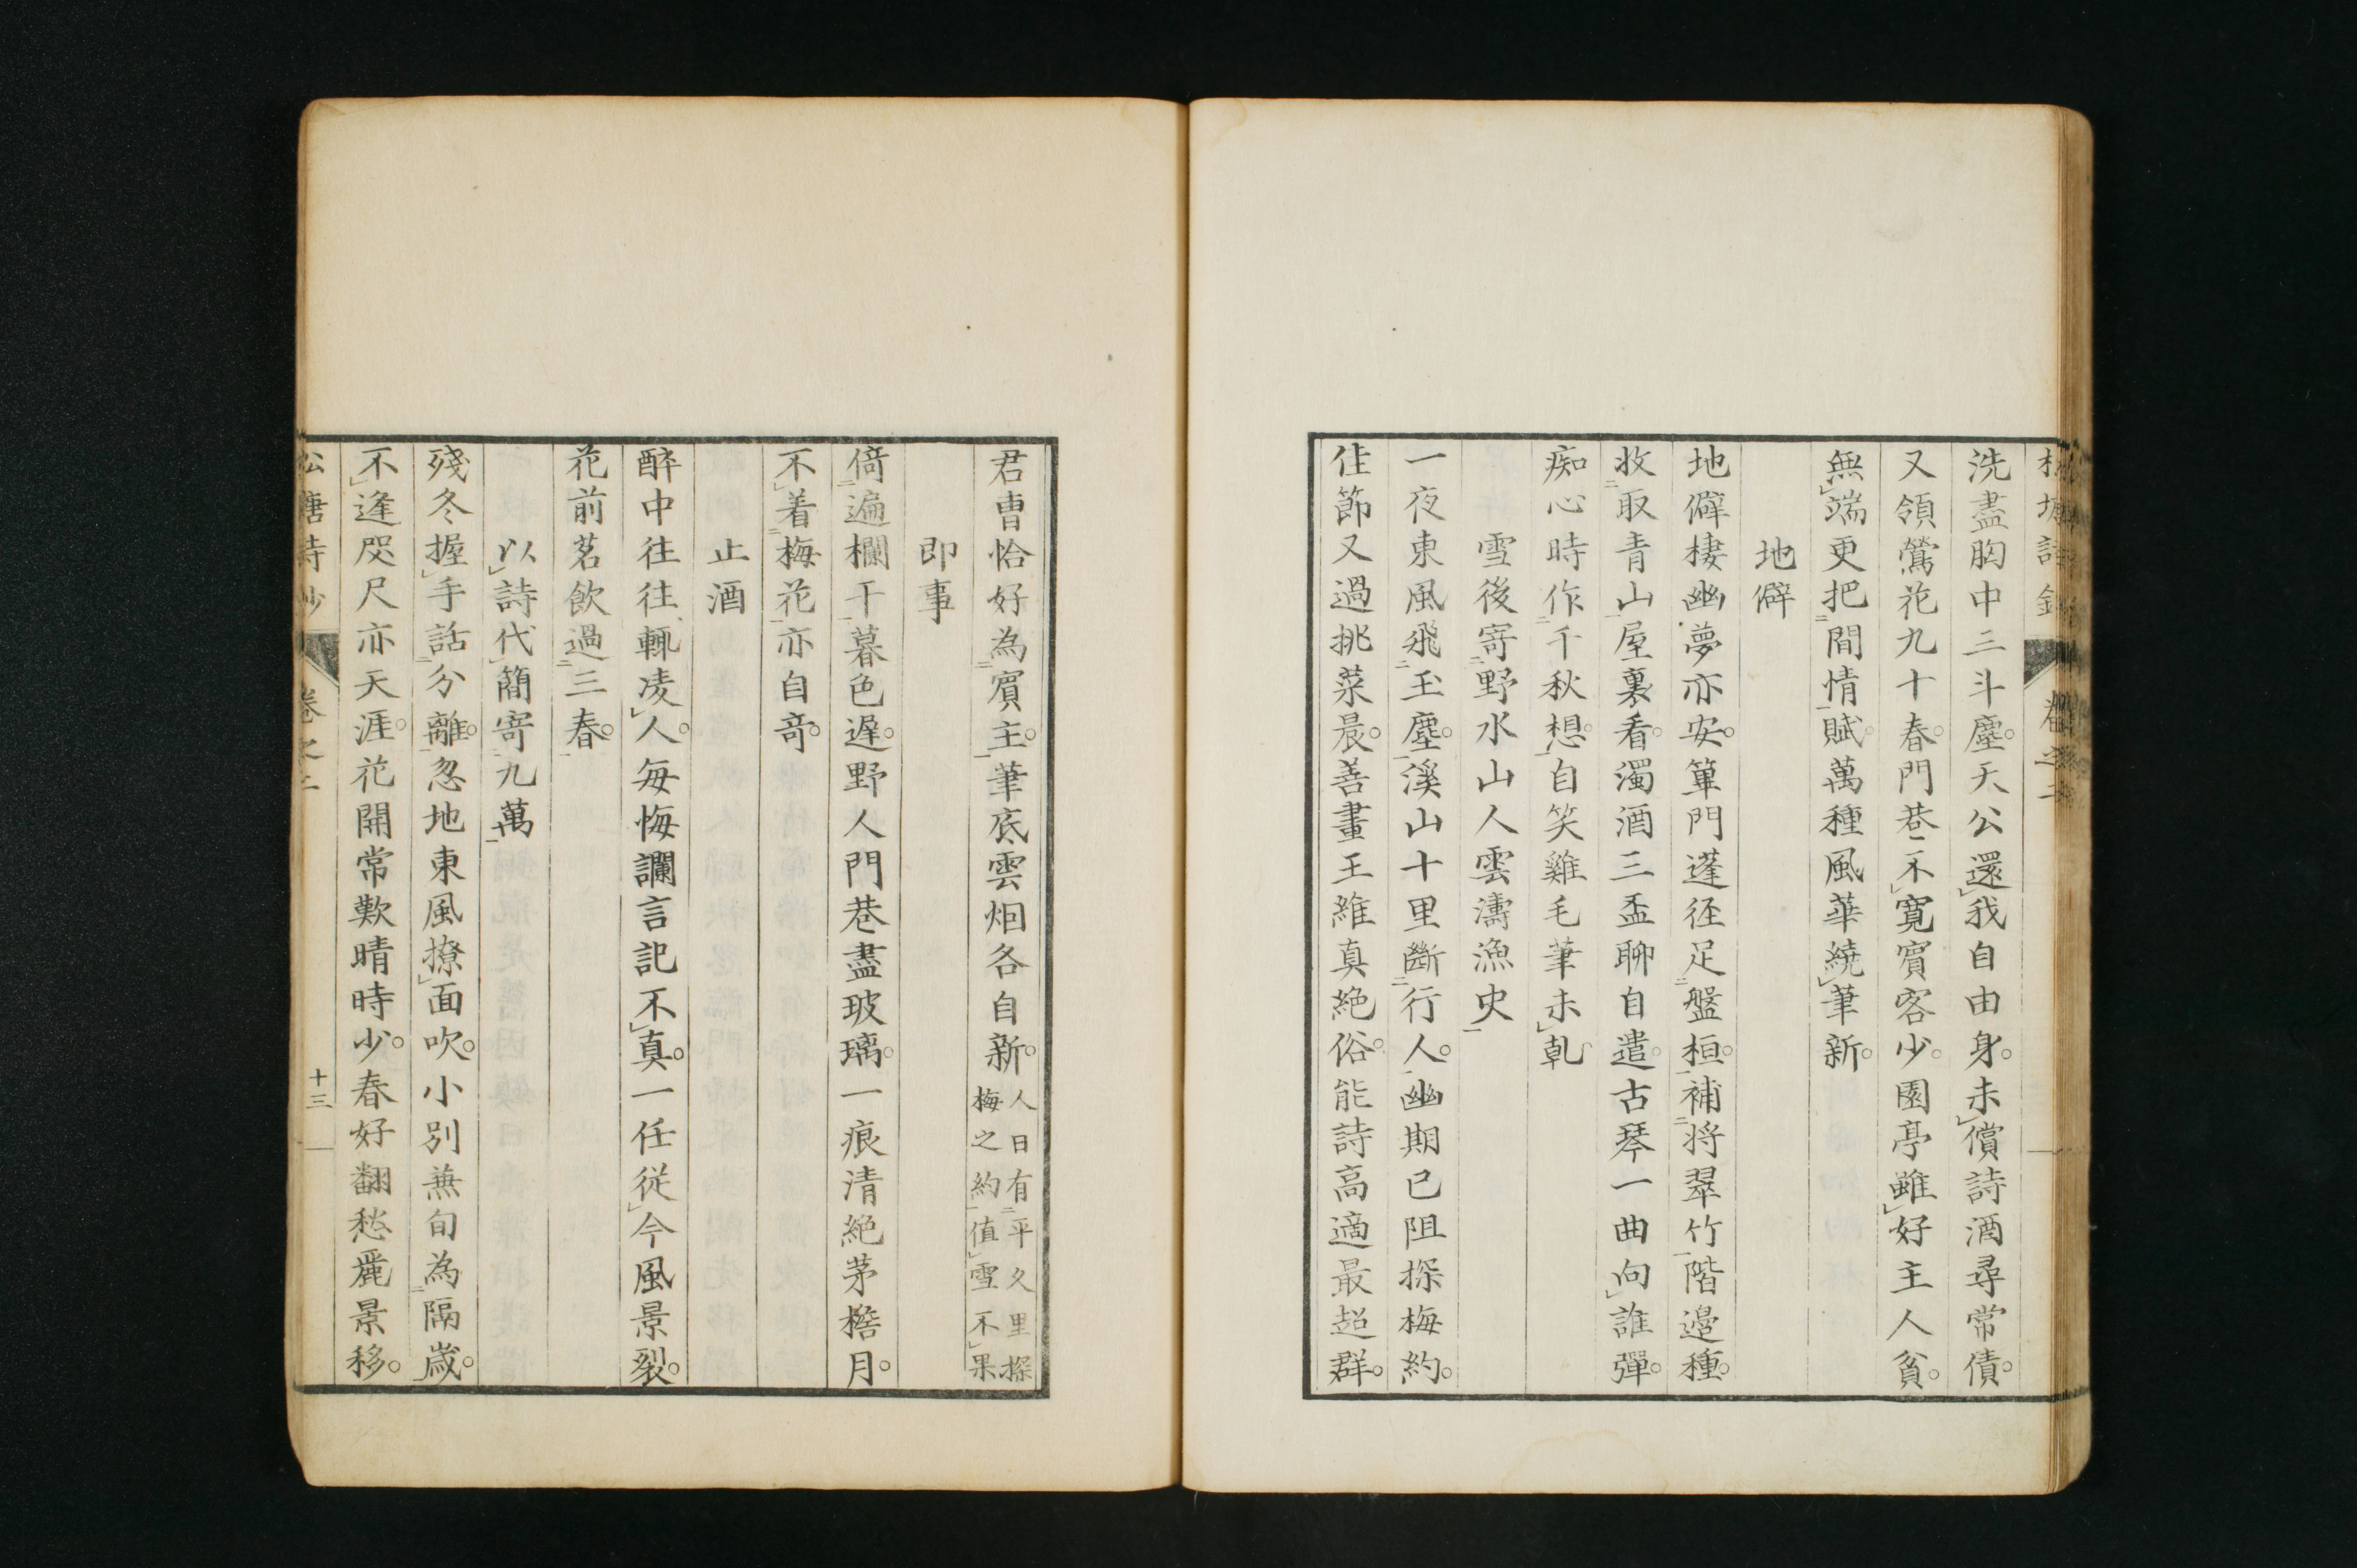 洗盡胸中三斗塵。天公還我自由身。未償詩酒尋常債。
又領鶯花九十春。門巷不寛賓客少。園亭雖好主人貧。
無端更把間情賦。萬種風華繞筆新。
地僻
地僻棲幽夢亦安。箪門蓬徑足盤桓。補將翠竹階邊種。
收取青山屋裏看。濁酒三盃聊自遣。古琴一曲向誰彈。
痴心時作千秋想。自笑雞毛筆未乾
雪後寄野水山人雲濤漁史
一夜東風飛玉塵。溪山十里斷行人。幽期已阻探梅約。
佳節又過挑菜晨。善畫王維真絶俗。能詩高適最超群。
君曹恰好為賓主。筆底雲烟各自新。人日有平久里探
梅之約値雪不果
即事
倚遍欄干暮色遲。野人門巷盡玻璃。一痕清絶茅檐月。
不着梅花亦自竒。
止酒
醉中往往輒凌人。毎悔讕言記不真。一任従今風景裂。
花前茗飲過三春。
以詩代簡寄九萬
殘冬握手話分離。忽地東風撩面吹。小別無旬為隔歳。
不逢咫尺亦天涯。花開常歎晴時少。春好翻愁麗景移。
卷之二
十三